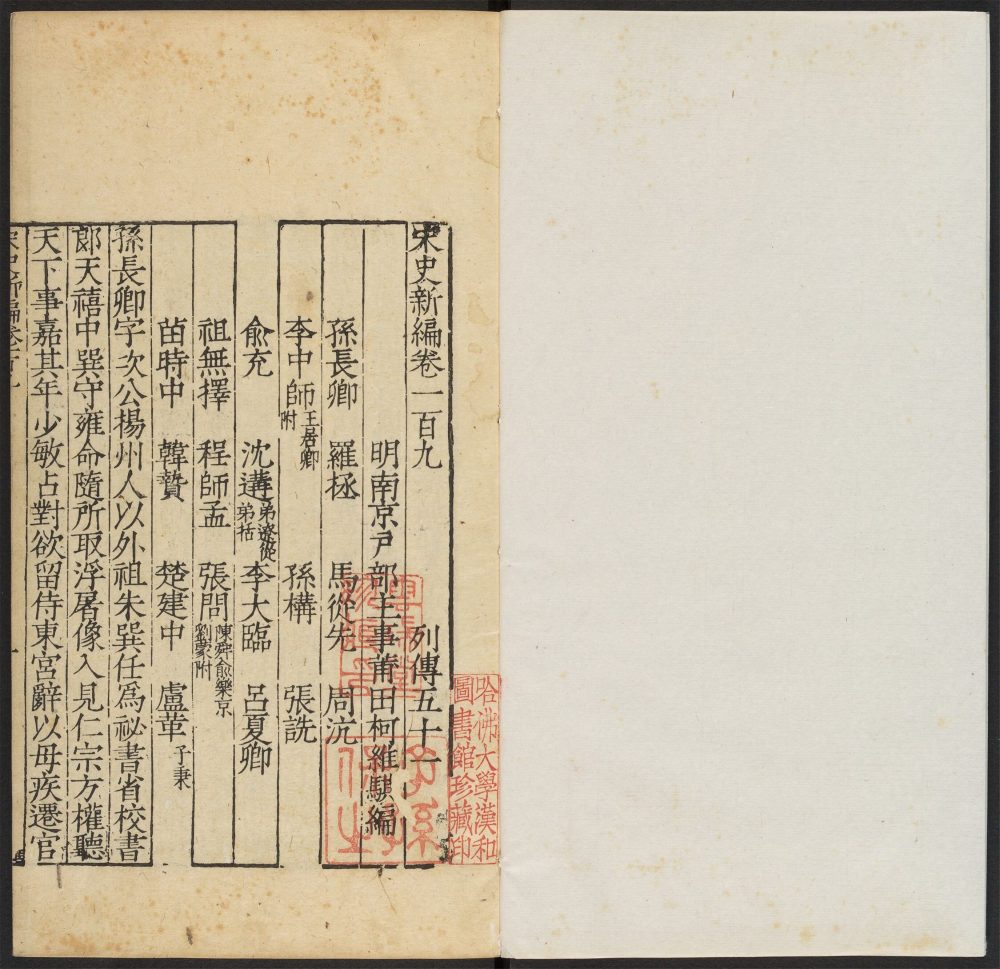 宋史新編卷一百九
列傳五十一
明南京戸部主事莆田柯維騏編
孫長卿 羅拯 馬從先 周沆
李中師王居卿附 孫構 張詵
俞充 沈遘弟遼從弟括 李大臨 呂夏卿
祖無擇 程師孟 張問陳舜俞樂京劉蒙附
苗時中 韓贄 楚建中 盧革子秉
孫長卿字次公楊州人以外祖朱巽任爲祕書省校書
郎天禧中巽守雍命隨所取浮屠像入見仁宗方權聽
天下事嘉其年少敏占對欲留侍東宮辭以母疾遷官
宋史新編卷一百九
一
哈佛大學漢和
圖書館珍藏印